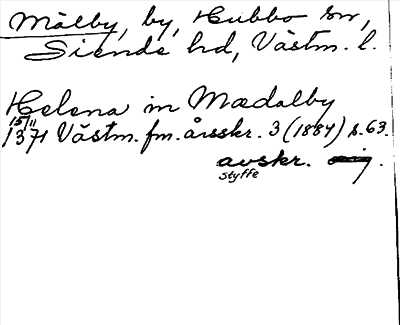 Målby, by, Hubbo sn,
Siende hd, Västm. l.
Helena in Mædalby
15/11
1371 Västm. fm. årsskr. 3 (1884) s. 63.
avskr.
Styffe